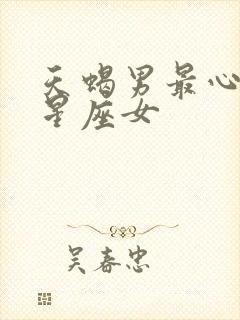 天蝎男最心
星座女
吴春忠